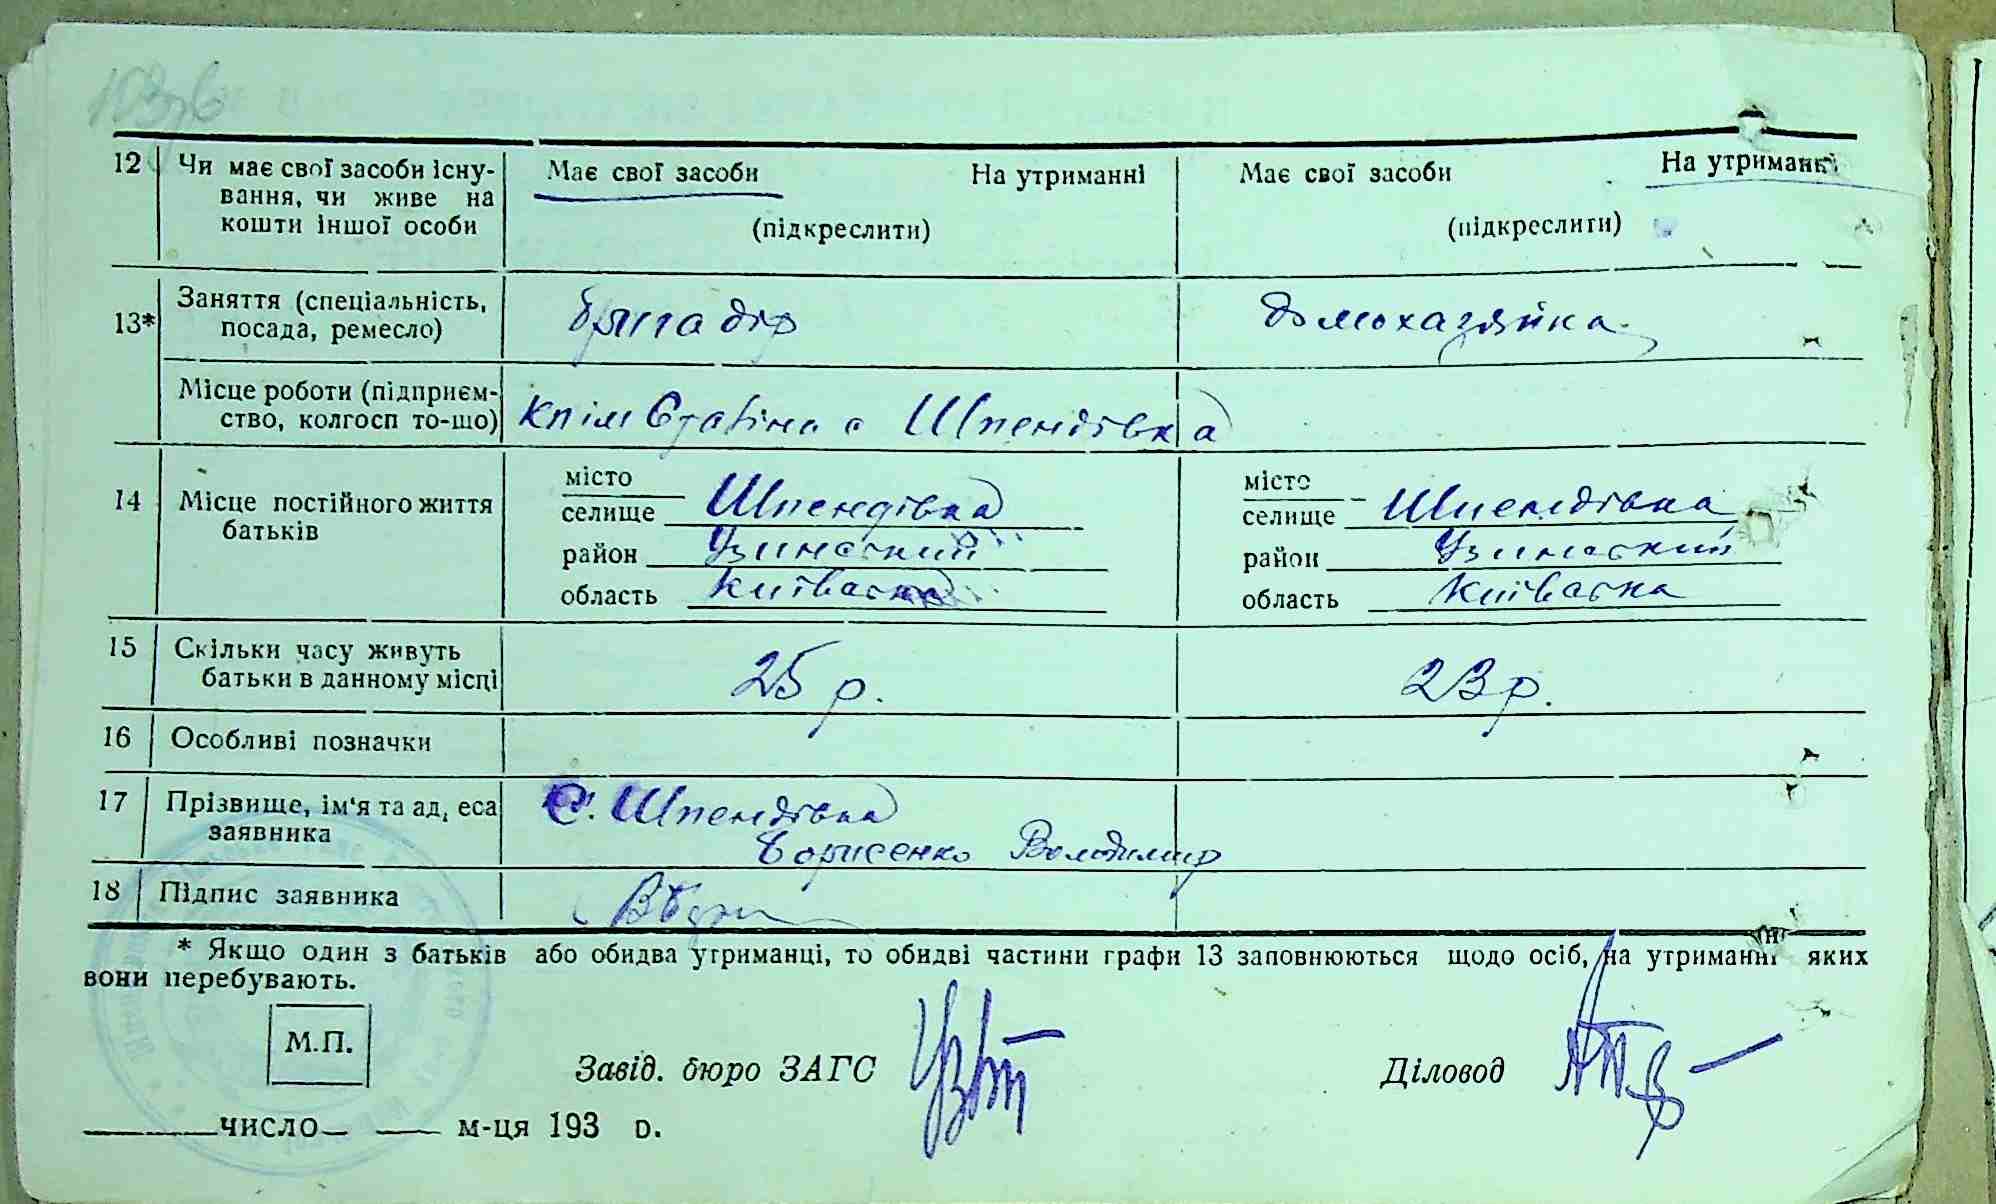 12 Чи має свої засоби існу- Має свої засоби На утриманні Має свої засоби На утриманні
вання, чи живе на
кошти іншої особи (підкреслити) (підкреслити)
13* Заняття (спеціальність, бригадір домохазяйка
посада, ремесло)
Місце роботи (підприєм-
ство, колгосп то-що) Сталіна с Шпендівка
14 Місце постійного життя місто місто
батьків селище Шпендівка селище Шпендівка
район Узинський район Узинський
область Київська область Київська
15 Скільки часу живуть 25 р. 23 р.
батьки в данному місці
16 Особливі позначки
17 Прізвище, ім'я та адреса с. Шпендівка
заявника Борисенко Володимир
18 Підпис заявника
* Якщо один з батьків або обидва утриманці, то обидві частини графи 13 заповнюються щодо осіб, на утриманні яких
вони перебувають.
М.П.
Завід. бюро ЗАГС Діловод
число м-ця 193 р.